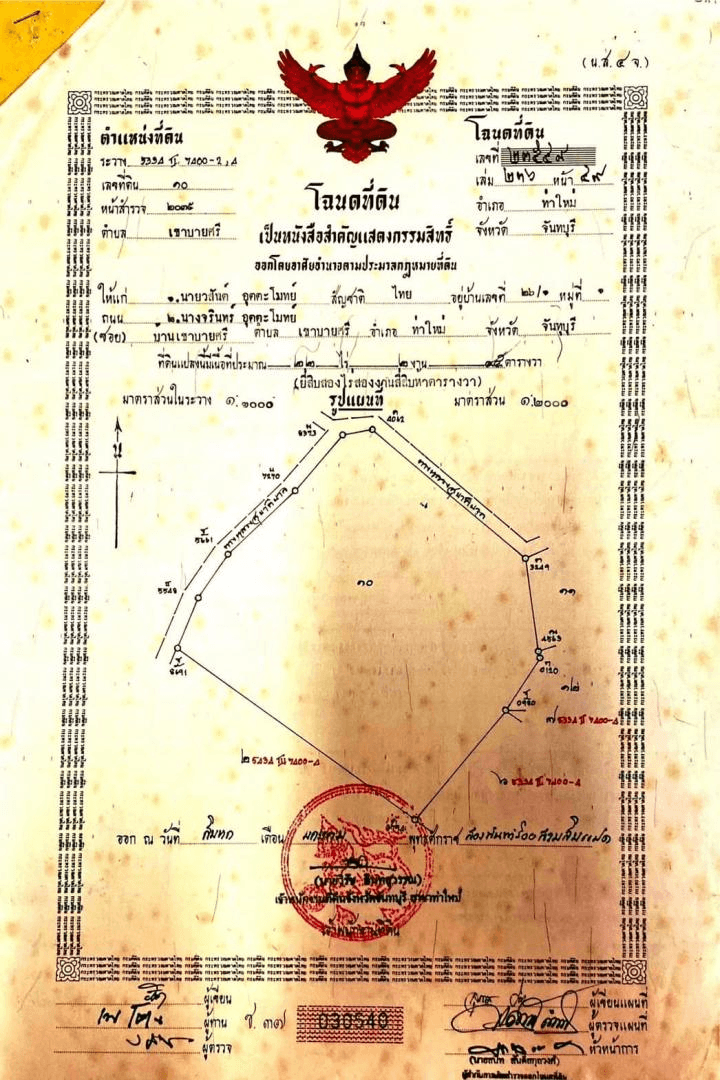 (น.ส.๔ จ.)
ตำแหน่งที่ดิน
ระวาง 5334 II 7400-2,4
เลขที่ดิน ๑๐
หน้าสำรวจ ๒๐๓๕
ตำบล เขาบายศรี
โฉนดที่ดิน
เลขที่ ๒๓๕๔๙
เล่ม ๒๓๖ หน้า ๔๙
อำเภอ ท่าใหม่
จังหวัด จันทบุรี
โฉนดที่ดิน
เป็นหนังสือสำคัญแสดงกรรมสิทธิ์
ออกโดยอาศัยอำนาจตามประมวลกฎหมายที่ดิน
ให้แก่ ๑.นายวสันต์ อุตตะโมทย์ สัญชาติ ไทย อยู่บ้านเลขที่ ๒๖/๑ หมู่ที่ ๑
ถนน ๒.นางจรินทร์ อุตตะโมทย์
(ซอย) บ้านเขาบายศรี ตำบล เขาบายศรี อำเภอ ท่าใหม่ จังหวัด จันทบุรี
ที่ดินแปลงนี้มีเนื้อที่ประมาณ ๒๒ ไร่ ๒ งาน ๔๕ ตารางวา
(ยี่สิบสองไร่สองงานสี่สิบห้าตารางวา)
มาตราส่วนในระวาง ๑:๑๐๐๐ รูปแผนที่ มาตราส่วน ๑:๒๐๐๐
น
ทางหลวงสุขาภิบาล
ทางหลวงสุขาภิบาล
๑๐
๑๑
๑๒
๗ 5334 II 7400-4
๒ 5434 III 7400-4
๖ 5334 II 7400-4
ออก ณ วันที่ เดือน มกราคม พุทธศักราช
เจ้าพนักงานที่ดินจังหวัดจันทบุรี สาขาท่าใหม่
เจ้าพนักงานที่ดิน
ผู้เขียน
ผู้ทาน
ผู้ตรวจ
ช. ๓๗ 030540
ผู้เขียนแผนที่
ผู้ตรวจแผนที่
หัวหน้าการ